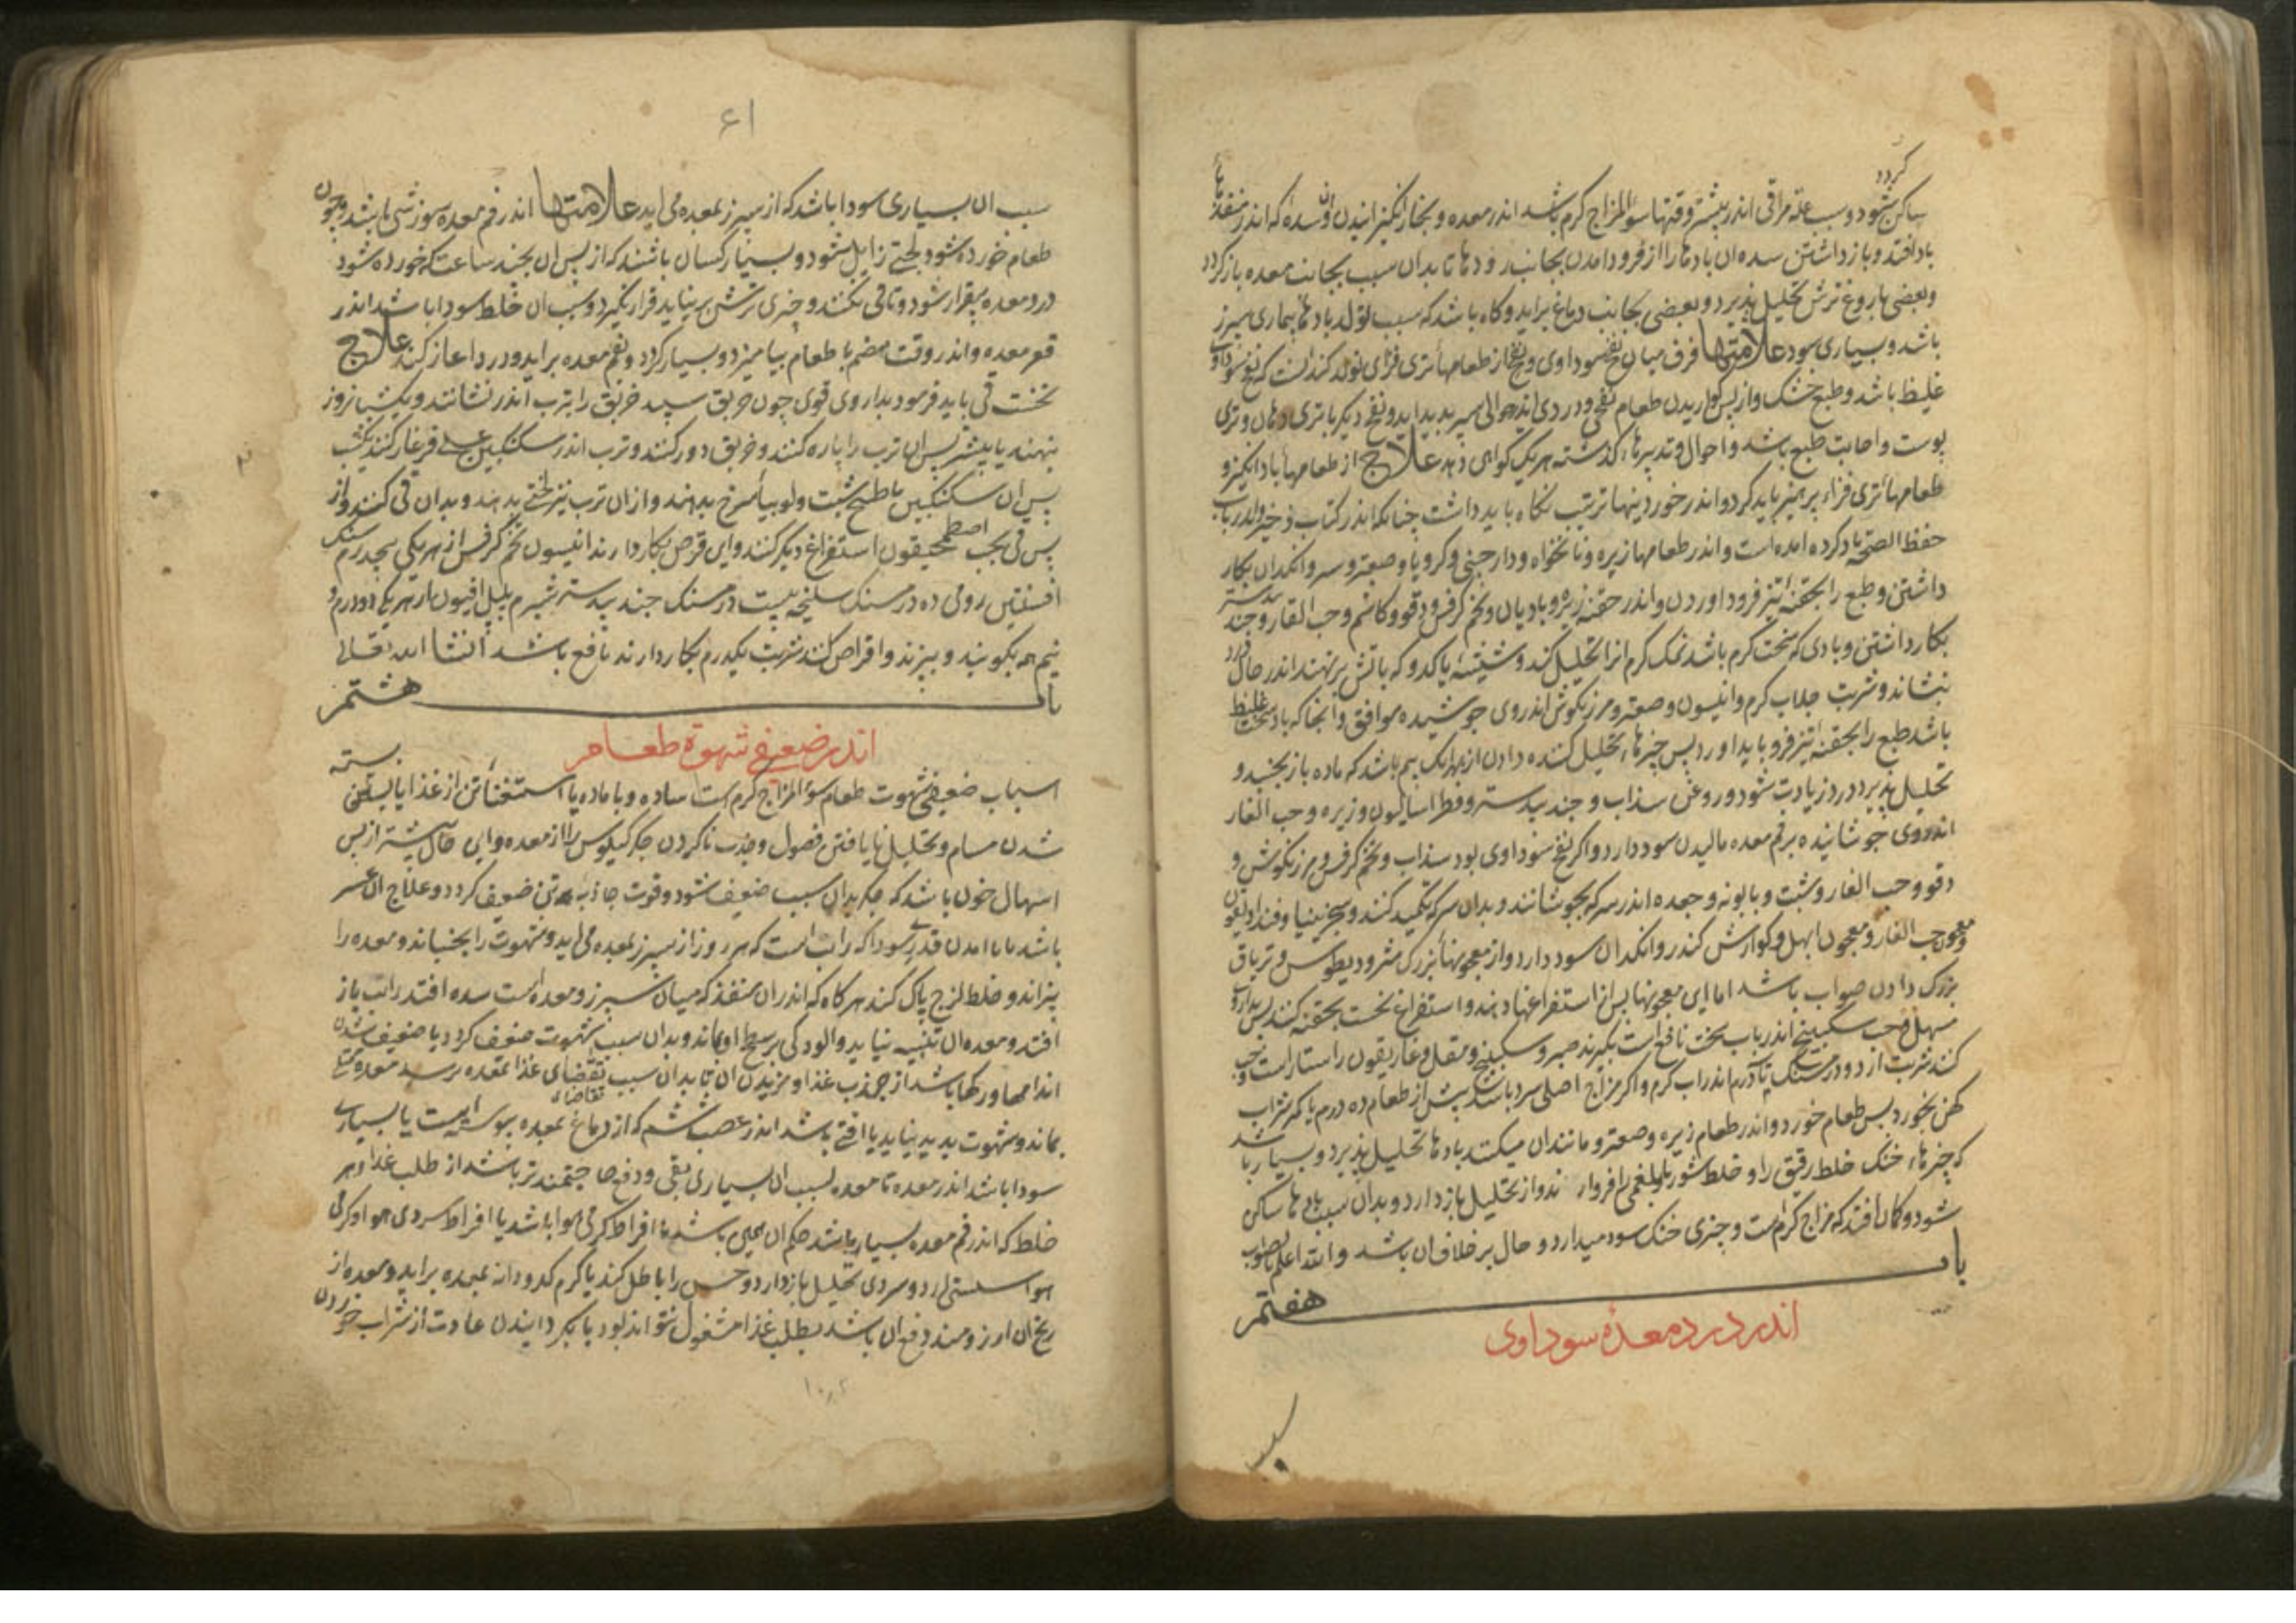 گردد
ساکن شود و سبب علة مراقی اندر بیشتر وقتها سوء المزاج گرم باشد اندر معده و بخار انگیزانیدن وان سده که اندر منفذها
باد افتد و باز داشتن سده ان بادها را از فرود امدن بجانب رودها تا بدان سبب بجانب معده باز گردد
وبعضی باروغ ترش تحلیل پذیرد و بعضی بجانب دماغ براید و گاه باشد که سبب تولد بادها بیماری سپرز
باشد و بسیاری سودا علامتها فرق میان نفخ سوداوی و نفخ از طعامهاء تری فزای تولد کند انست که نفخ سوداوی
غلیظ باشد و طبع خشک و از پس گواریدن طعام نفخی و دردی اندر حوالی سپرز پدید اید و نفخ دیگر با تری دهان و تری
پوست و اجابت طبع باشد و احوال و تدبیرهاء گذشته بر یک گواهی دهد علاج از طعامهاء باد انگیز و
طعامهاء تری فزاء پرهیز باید کرد و اندر خوردنیها ترتیب نگاه باید داشت چنانکه اندر کتاب ذخیره اندر باب
حفظ الصحه یاد کرده امده است و اندر طعامها زیره و نانخواه و دارچینی و کرویا و صعتر و سرو انکدان بکار
داشتن و طبع را بحقنه تیز فرود اوردن و اندر حقنه زیره و بادیان و تخم کرفس و دوقو و کاشم و حب الغار و جندبیدستر
بکار داشتن و بادی که سخت گرم باشد نمک گرم انرا تحلیل کند و شیشه یا کدو که باتش بر نهند اندر حال درد
بنشاند و شربت جلاب گرم و انیسون و صعتر و مرزنگوش اندر وی جوشیده موافق و انجا که باد سخت غلیظ
باشد طبع را بحقنه تیز فرو باید اورد پس چیزهاء تحلیل کننده دادن از بهر انک بیم باشد که ماده باز بجنبد و
تحلیل پذیرد درد زیادت شود و روغن سذاب و جندبیدستر و فطراسالیون و زیره و حب الغار
اندر وی جوشانیده بر فم معده مالیدن سود دارد و اگر نفخ سوداوی بود سذاب و تخم کرفس و مرزنگوش و
دوقو و حب الغار و شبت و بابونه و جعده اندر سرکه بجوشانند و بدان سرکه تکمید کنند و سجزینیا و فنداديقون
و معجون حب الغار و معجون ابهل و گوارش کندر و انکدان سود دارد و از معجونهاء بزرگ مثرودیطوس و تریاق
بزرگ دادن صواب باشد اما این معجونها پس از استفراغها دهند و استفراغ نخست بحقنه کنند پس بداروی
مسهل و حب سکبینج اندر باب سخت نافع است بگیرند صبر و سکبینج و مقل و غاریقون راستا راست حب
کنند شربت از دو درمسنگ تا درم اندر اب گرم و اگر مزاج اصلی سرد باشد پیش از طعام ده درم یا کمتر شراب
کهن بخورد پس طعام خورد و اندر طعام زیره و صعتر و مانند ان میکنند بادها تحلیل پذیرد و بسیار باشد
که چیزهاء خنک خلط رقیق را و خلط شور یا بلغمی را و از تحلیل باز دارد و بدان سبب بادها ساکن
شود و گمان افتد که مزاج گرم است و چیزی خنک سود میدارد و حال بر خلاف ان باشد والله اعلم بالصواب
باب هفتم
اندر درد معدهٔ سوداوی
سبب
۶۱
سبب ان بسیاری سودا باشد که از سپرز بمعده می اید علامتها اندر فم معده سوزشی باشد و چون
طعام خورده شود لختی زایل شود و بسیار کسان باشند که از پس ان بچند ساعت که خورده شود
درد معده بیقرار شود و تا قی نکنند و چیزی ترش بر نیاید قرار نگیرد و سبب ان خلط سودا باشد اندر
قعر معده و اندر وقت هضم با طعام بیامیزد و بسیار گردد و بفم معده براید و درد اغاز کند علاج
نخست قی باید فرمود بداروی قوی چون خربق سپید خربق را بترب اندر نشانند و یکشبانروز
بنهند یا بیشتر پس ان ترب را پاره کنند و خربق دور کنند و ترب اندر سکنکبین عسلی فرغار کنند یکشب
پس ان سکنکبین با طبیخ شبت و لوبیاء سرخ بدهند و از ان ترب نیز لختی بدهند و بدان قی کنند و از
پس قی بحب اصطمحیقون استفراغ دیگر کنند و این قرص بکار دارند انیسون تخم کرفس از هر یکی پنجدرم سنک
افسنتین رومی ده درمسنک سلیخه بیست درمسنک جندبیدستر پلپل افیون از هر یکی دو درم و
نیم همه بکوبند و بپزند و اقراص کنند شربت یکدرم بکار دارند نافع باشد انشا الله تعالی
باب هشتم
اندر ضعیفی شهوة طعام
اسباب ضعیفی شهوت طعام سوء المزاج گرم است ساده و با ماده یا استغناء تن از غذا یا بسته
شدن مسام و تحلیل نایافتن فضول و جذب ناکردن جگر کیلوس را از معده و این حال بیشتر از پس
اسهال خون باشد که جگر بدان سبب ضعیف شود و قوت جاذبه تن ضعیف گردد و علاج ان عسر
باشد یا نا امدن قدری سودا که راتب است که هر روز از سپرز بمعده می اید و شهوت را بجنباند و معده را
بیزاند و خلط لزج پاک کند هرگاه که اندر ان منفذ که میان سپرز و معده است سده افتد راتب باز
افتد و معده ان تنبیه نیاید و الودگی بر سطح او بماند و بدان سبب شهوت ضعیف گردد یا ضعیف شدن
اندامها و رگها باشد از جذب غذا و مزیدن ان تا بدان سبب تقاضای غذا بمعده نرسد معده
بماند و شهوت پدید نیاید یا افتی باشد اندر عصب ششم که از دماغ بمعده پیوسته است یا بسیاری
سودا باشد اندر معده تا معده بسبب ان بسیاری بقی و دفع حاجتمندتر باشد از طلب غذا و هر
خلط که اندر فم معده بسیار باشد حکم ان همین باشد یا افراط گرمی هوا باشد یا افراط سردی هوا و گرمی
هوا سستی ارد و سردی تحلیل باز دارد و حس را باطل کند یا کرم کدو دانه بمعده براید و معده از
رنج ان ارزومند دفع ان باشد بطلب غذا مشغول نتواند بود یا بگردانیدن عادت از شراب خوردن